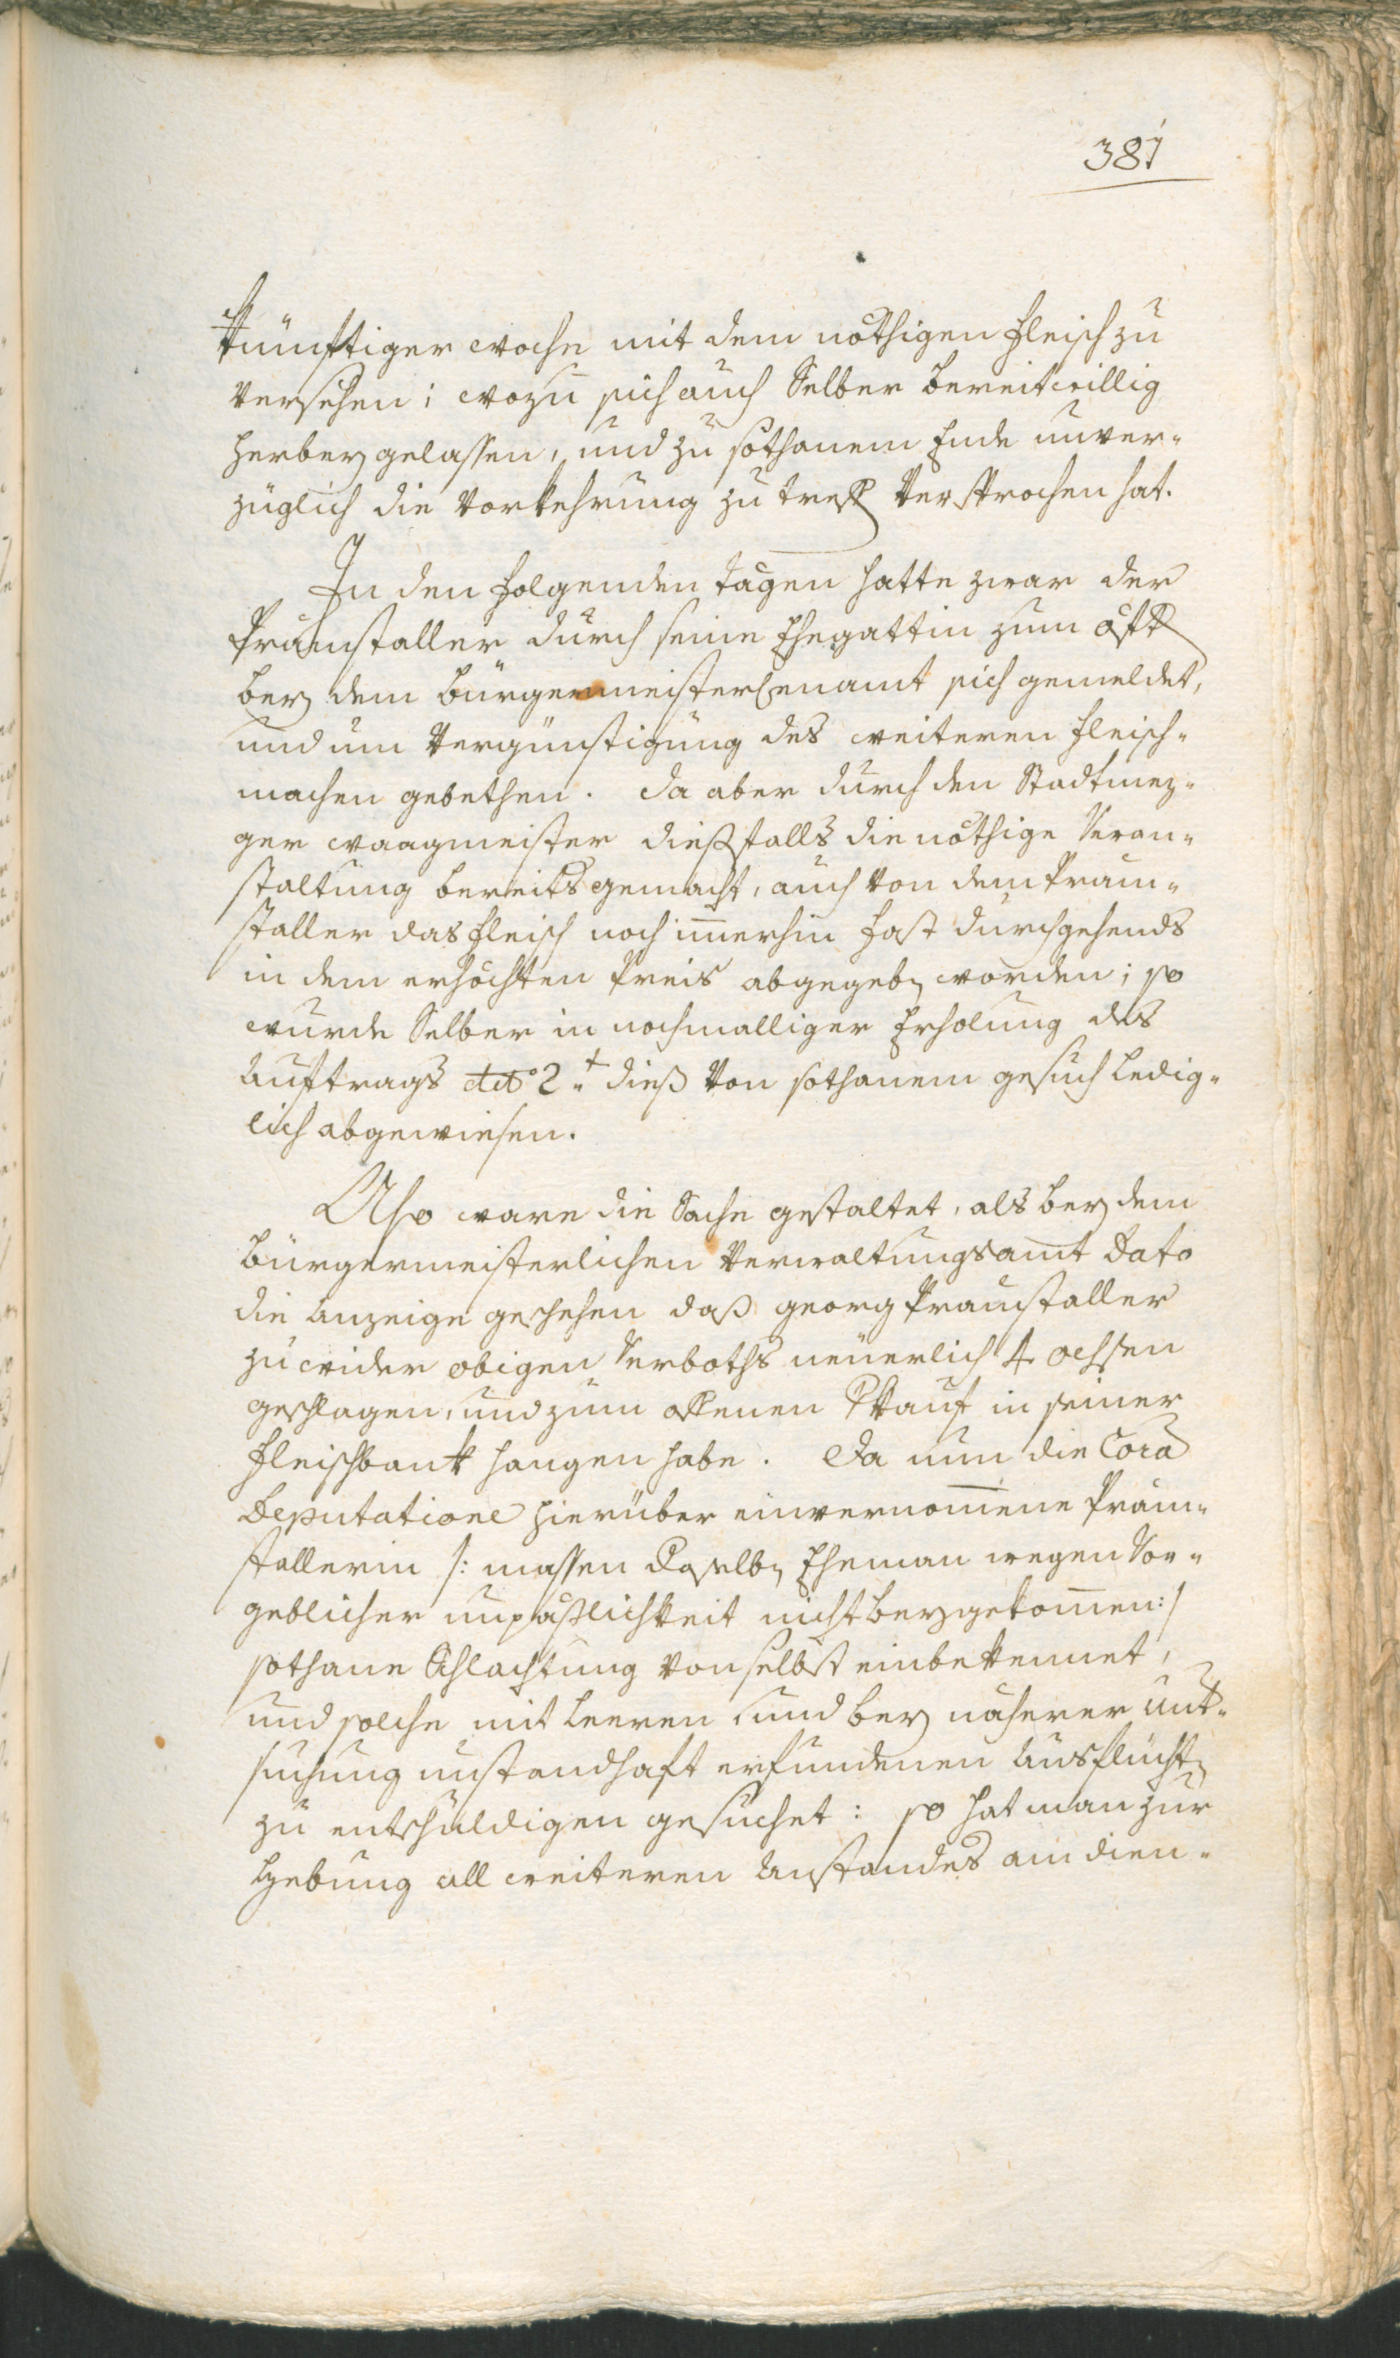 381
künftiger woche mit dem nöthigen Fleisch zu
versehen; wozu sich auch Selber bereitwillig
herbey gelassen, und zu sothanem Ende unver-
züglich die Vorkehrung zu treffen versprochen hat.
In den folgenden tägen hatte zwar der
Praunstaller durch seine Ehegattin zum öftern
bey dem bürgermeisterenamt sich gemeldet,
und um Vergünstigung des weiteren Fleisch-
machen gebethen. da aber durch den Stadtmez-
ger waagmeister diesfalls die nöthige Veran-
staltung bereits gemacht, auch von dem Praun-
staller das Fleisch noch immerhin fast durchgehends
in dem erhöchten Preis abgegeben worden; so
wurde Selber in nochmalliger Erholung des
Auftrags ddto 2.t dieß von sothanem gesuch ledig-
lich abgewiesen.
Also ware die Sache gestaltet, als bey dem
bürgermeisterlichen Verwaltungsamt Dato
die Anzeige geschehen daß georg Praunstaller
zuwider obigen Verboths neüerlich 4 ochsen
geschlagen, und zum offenen Verkauf in seiner
Fleischbank hangen habe. Da nun die Cora
Deputatione hierüber einvernomene Praun-
stallerin /: massen daselben Eheman wegen Vor-
geblicher unpäßlichkeit nicht beygekomen:/
sothane Schlachtung von selbst einbekennet,
und solche mit leeren und bey näherer Unter-
suchung unstandhaft erfundenen Ausflüchten
zu entschuldigen gesuchet: so hat man zur
Hebung all weiteren Anstandes am dien-